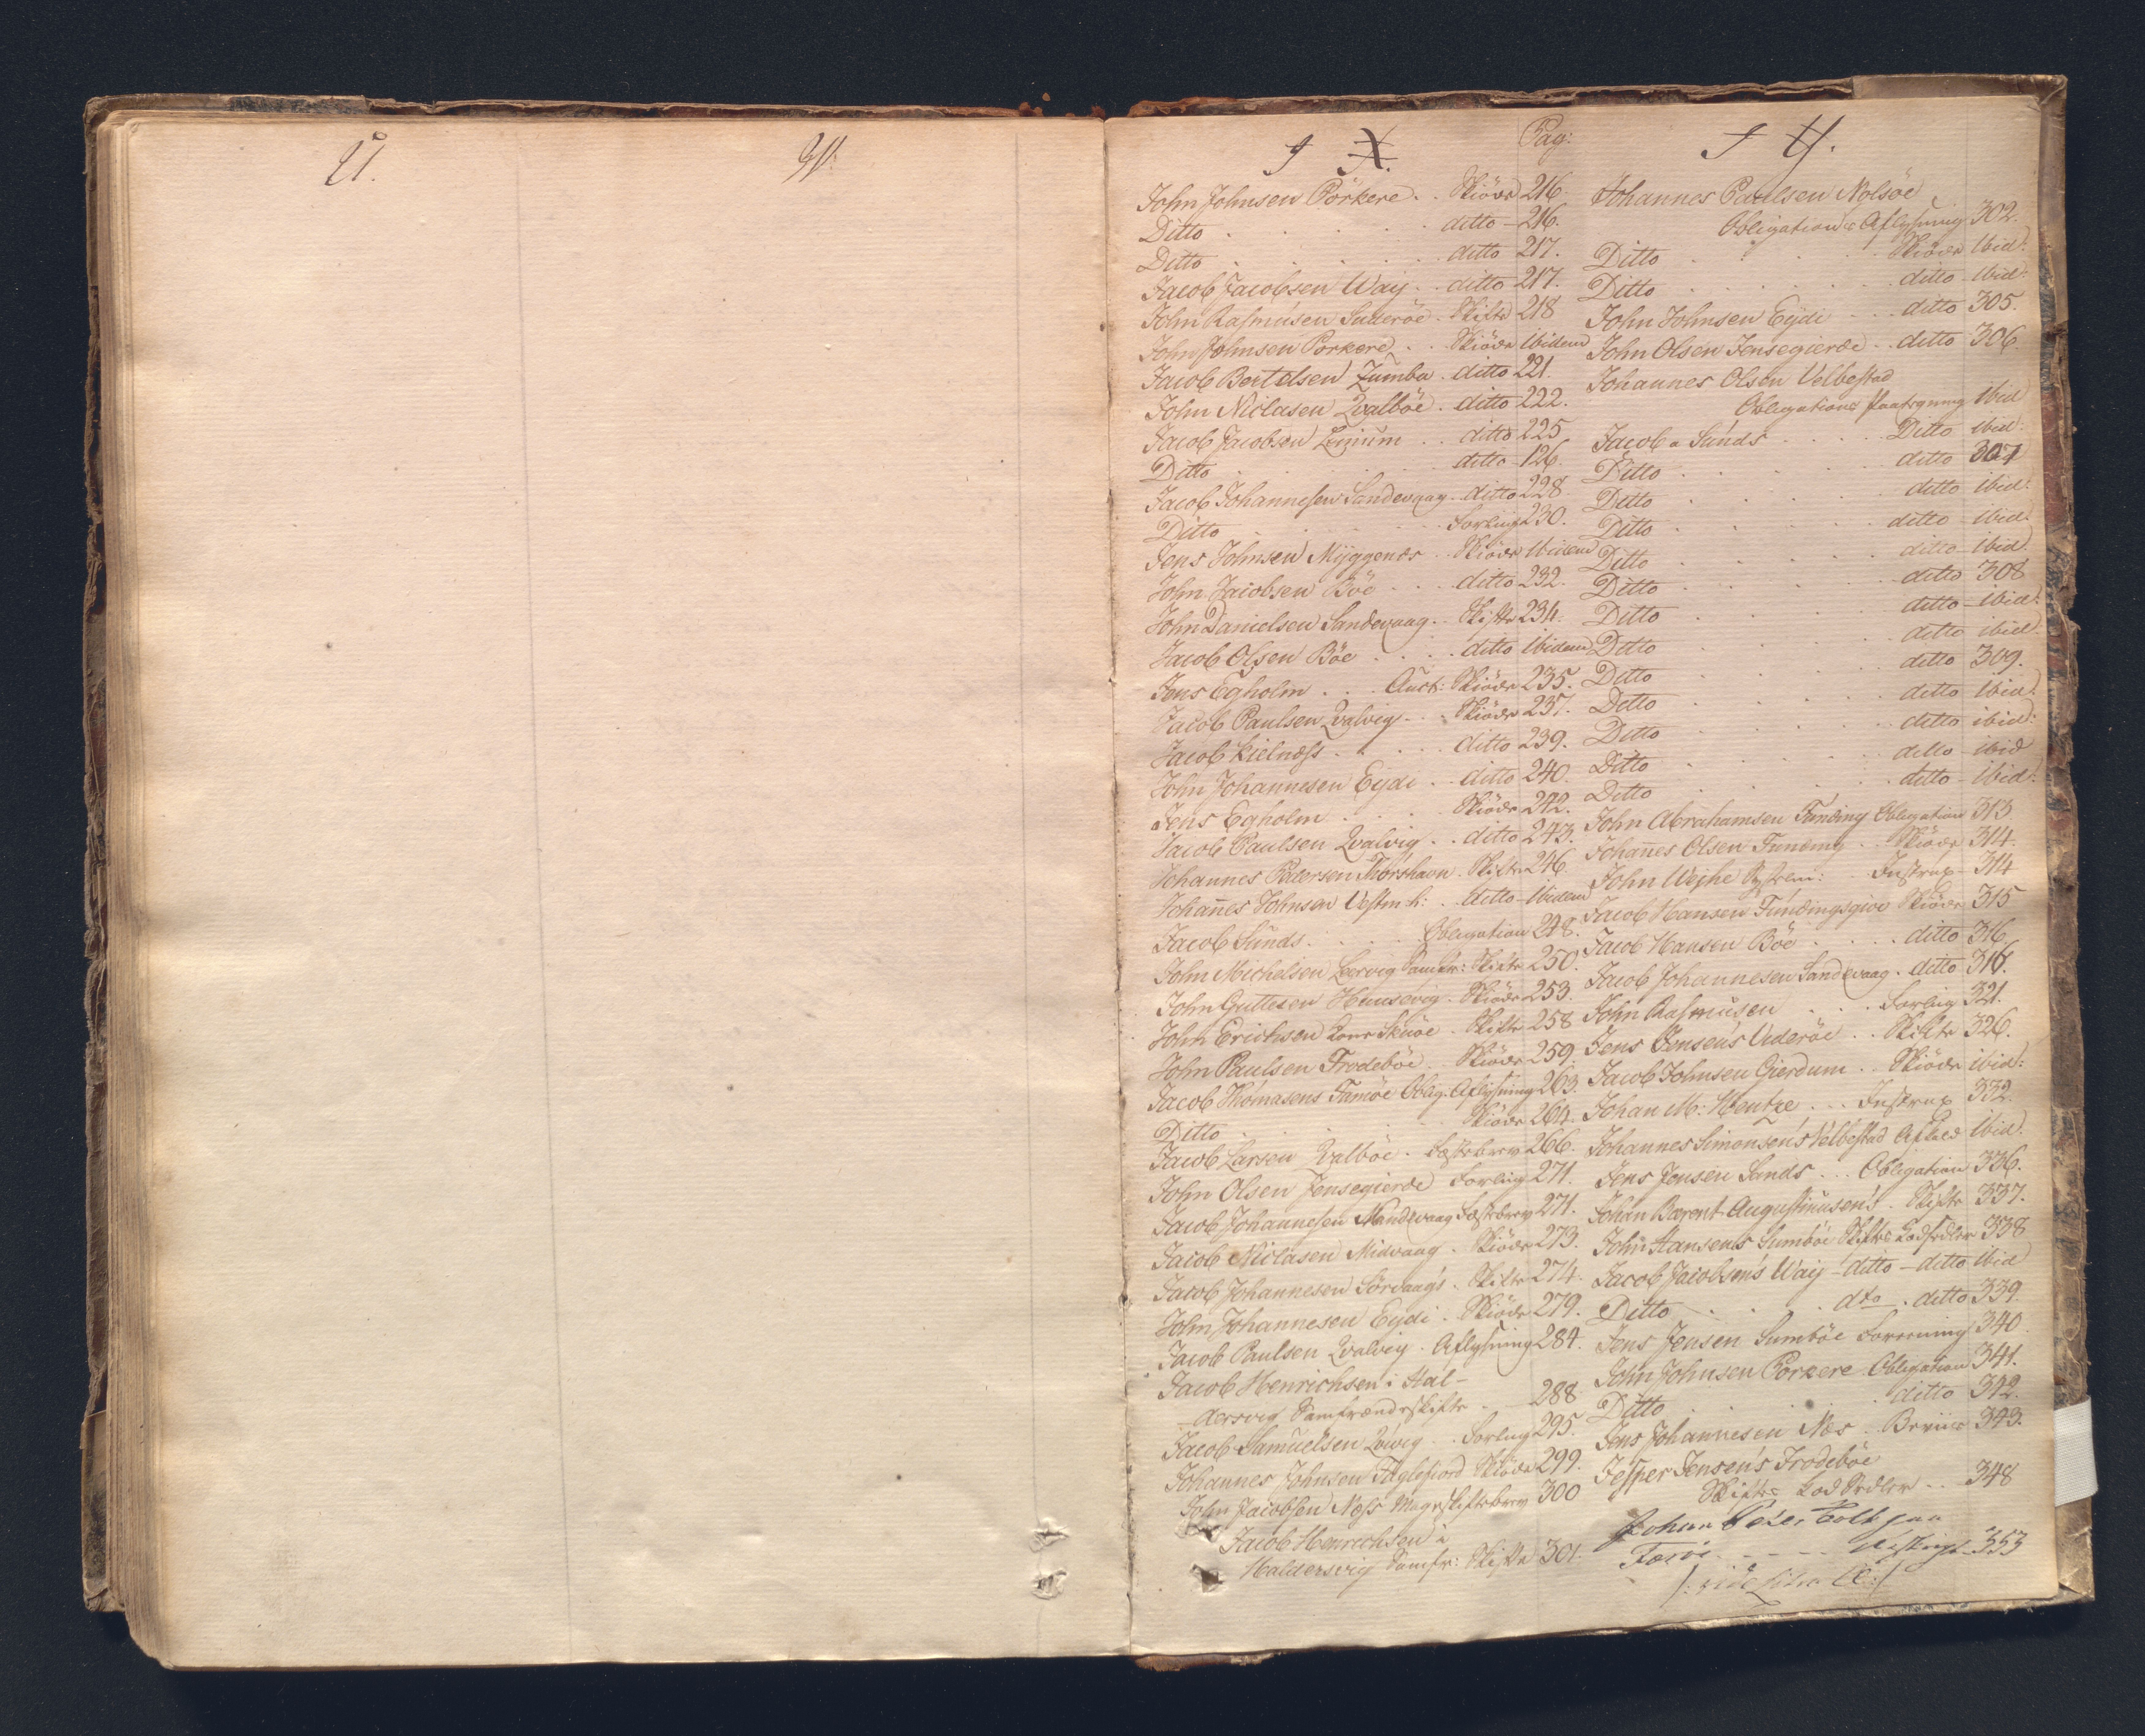 U.
W.
J X. Pag:
John Johnsen Pörkere . . Skiöde 216.
Ditto . . . . . ditto 216.
Ditto . . . . . ditto 217.
Jacob Jacobsen Waij . . ditto 217.
John Rasmusen Suderöe . Skifte 218
John Johnsen Porkere . . Skiöde ibidem
Jacob Bertelsen Zumba . ditto 221.
John Niclasen Qvalböe . ditto 222.
Jacob Jacobsen . . ditto 225
Ditto . . . . ditto 126.
Jacob Johannesen Sandevaag . ditto 228
Ditto . . . . Forliig 230.
Jens Johnsen Myggenes . Skiöde Ibidem
John Jacobsen Böe . . . ditto 232.
John Danielsen Sandevaag . Skifte 234.
Jacob Olsen Böe . . . . ditto Ibidem
Jens Egholm . . Auct: Skiöde 235.
Jacob Paulsen Qvalvig . . Skiöde 237.
Jacob Kielnæss . . . . ditto 239.
John Johannesen Eijdi . . ditto 240.
Jens Egholm . . . . Skiöde 242.
Jacob Paulsen Qvalvig . . ditto 243.
Johannes Pedersen Thorshavn . Skifte 246
Johañes Johnsen Vestm h: . ditto Ibidem
Jacob Sunds . . . . Obligation 248.
John Michelsen Leervig Samfr: Skifte 250.
John Guttesen Huusevig . Skiöde 253.
John Erichsen Skuöe . Skifte 258
John Paulsen Frodeböe . . Skiöde 259.
Jacob Thomasens Famöe Oblig. Aflysning 263.
Ditto . . . . . Skiöde 264.
Jacob Larsen Qvalböe . Fæstebrev 266.
John Olsen Jensegierde Forliig 271.
Jacob Johannesen Sandevaag Fæstebrev 271.
Jacob Niclasen Midvaag . Skiöde 273.
Jacob Johannesen Sörvaags . Skifte 274.
John Johannesen Eijdi . Skiöde 279.
Jacob Paulsen Qvalvig . Aflysning 284.
Jacob Henrichsen i Hal-
dersvig Samfrændeskifte . . 288
Jacob Samuelsen Qvivig . . Forliig 295.
Johannes Johnsen Fuglefiord Skiöde 299.
John Jacobsen Næss Mageskiftebrev 300
Jacob Henrichsen i
Haldersvig Samfr: Skifte 301.
J Y.
Johannes Paulsen Nolsöe
Obligations Aflysning 302.
Ditto . . . . . Skiöde Ibid:
Ditto . . . . . ditto Ibid:
John Johnsen Eijdi . . . ditto 305.
John Olsen Jensegierde . . ditto 306
Johannes Olsen Velbestad
Obligations Paategning Ibid
Jacob a Sunds . . . . Ditto ibid:
Ditto . . . . . ditto 307
Ditto . . . . . ditto ibid:
Ditto . . . . . ditto Ibid:
Ditto . . . . . ditto Ibid
Ditto . . . . . ditto 308
Ditto . . . . . ditto Ibid:
Ditto . . . . . ditto ibid
Ditto . . . . . ditto 309.
Ditto . . . . . ditto Ibid:
Ditto . . . . . ditto ibid:
Ditto . . . . . ditto ibid
Ditto . . . . . ditto ibid:
John Abrahamsen Funding Obligation 313
Johañes Olsen Funding . . Skiöde 314.
John Wejhe . . Instrux 314
Jacob Hansen Fundingsgiov Skiöde 315
Jacob Hansen Böe . . . . ditto 316
Jacob Johannesen Sandevaag . ditto 316.
John Rasmusen . . . Forliig 321.
Jens Jensens Videröe . . Skifte 326.
Jacob Johnsen Gierdum . . Skiöde ibid:
Johan M: Hentze . . . Instrux 332.
Johannes Simonsen's Velbestad Afkald Ibid:
Jens Jensen Sands . . . Obligation 336.
Johan Barent Augustinusen's . Skifte 337.
John Hansens Sumböe Skifte Lodsedler 338
Jacob Jacobsen's Waij - ditto - ditto Ibid
Ditto . . . . . dto . ditto 339.
Jens Jensen Sumböe 340
John Johnsen Porkere Obligation 341.
Ditto . . . . . ditto 342.
Jens Johannesen Næs . . Beviis 343.
Jesper Jensen's Frodeböe
Skiftes Lod Sedler . . 348
Johan Peter
Færöe - - - - 353
/: vide Litra :/